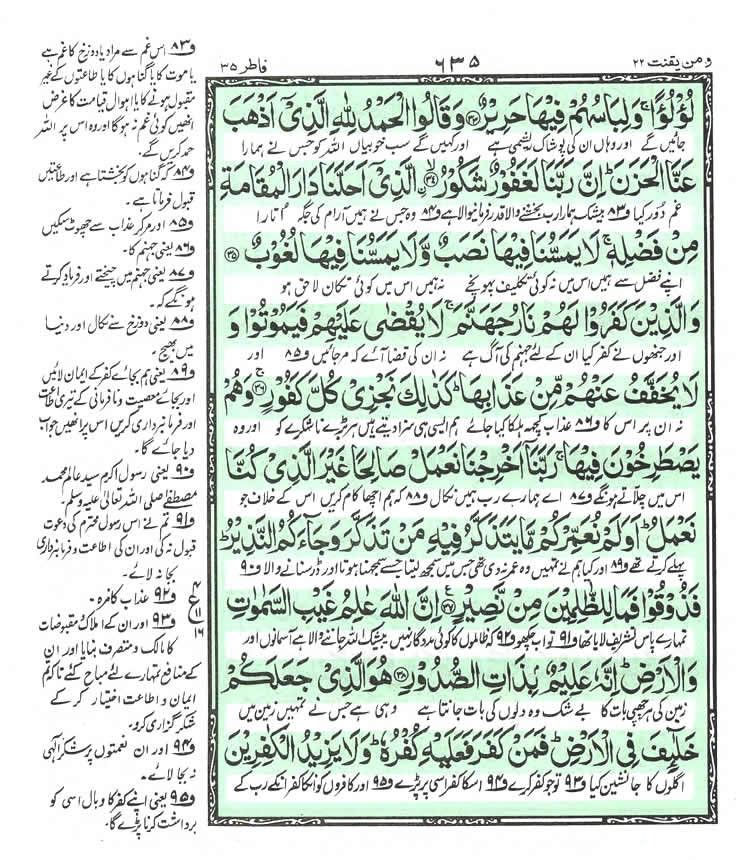 ومن یقنت ۲۲
۶۳۵
فاطر ۳۵
لُؤْلُؤًا ۚ وَلِبَاسُهُمْ فِيْهَا حَرِيْرٌ ﴿۳۳﴾ وَقَالُوا الْحَمْدُ لِلّٰهِ الَّذِيْۤ اَذْهَبَ
جائیں گے اور وہاں ان کی پوشاک ریشمی ہے اور کہیں گے سب خوبیاں اللہ کو جس نے ہمارا
عَنَّا الْحَزَنَ ؕ اِنَّ رَبَّنَا لَغَفُوْرٌ شَكُوْرُ ۙ﴿۳۴﴾ الَّذِيْۤ اَحَلَّنَا دَارَ الْمُقَامَةِ
غم دور کیا و۸۳ بیشک ہمارا رب بخشنے والا قدر فرمانیوالا ہے و۸۴ وہ جس نے ہمیں آرام کی جگہ اتارا
مِنْ فَضْلِهٖ ۚ لَا يَمَسُّنَا فِيْهَا نَصَبٌ وَّلَا يَمَسُّنَا فِيْهَا لُغُوْبٌ ﴿۳۵﴾
اپنے فضل سے ہمیں اس میں نہ کوئی تکلیف پہونچے نہ ہمیں اس میں کوئی تکان لاحق ہو
وَالَّذِيْنَ كَفَرُوْا لَهُمْ نَارُ جَهَنَّمَ ۚ لَا يُقْضٰى عَلَيْهِمْ فَيَمُوْتُوْا وَ
اور جنھوں نے کفر کیا ان کے لئے جہنم کی آگ ہے نہ ان کی قضا آئے کہ مر جائیں و۸۵ اور
لَا يُخَفَّفُ عَنْهُمْ مِّنْ عَذَابِهَا ؕ كَذٰلِكَ نَجْزِيْ كُلَّ كَفُوْرٍ ۚ﴿۳۶﴾ وَهُمْ
نہ ان پر اس کا و۸۶ عذاب کچھ ہلکا کیا جائے ہم ایسی ہی سزا دیتے ہیں ہر بڑے ناشکرے کو اور وہ
يَصْطَرِخُوْنَ فِيْهَا ۚ رَبَّنَاۤ اَخْرِجْنَا نَعْمَلْ صَالِحًا غَيْرَ الَّذِيْ كُنَّا
اس میں چلاتے ہونگے و۸۷ اے ہمارے رب ہمیں نکال و۸۸ کہ ہم اچھا کام کریں اس کے خلاف جو
نَعْمَلُ ؕ اَوَلَمْ نُعَمِّرْكُمْ مَّا يَتَذَكَّرُ فِيْهِ مَنْ تَذَكَّرَ وَجَآءَكُمُ النَّذِيْرُ ؕ
پہلے کرتے تھے و۸۹ اور کیا ہم نے تمہیں وہ عمر نہ دی تھی جس میں سمجھ لیتا جسے سمجھنا ہوتا اور ڈر سنانے والا و۹۰
فَذُوْقُوْا فَمَا لِلظّٰلِمِيْنَ مِنْ نَّصِيْرٍ ﴿۳۷﴾ اِنَّ اللّٰهَ عٰلِمُ غَيْبِ السَّمٰوٰتِ
تمہارے پاس تشریف لایا تھا و۹۱ تو اب چکھو و۹۲ کہ ظالموں کا کوئی مددگار نہیں بیشک اللہ جاننے والا ہے آسمانوں اور
وَالْاَرْضِ ؕ اِنَّهٗ عَلِيْمٌۢ بِذَاتِ الصُّدُوْرِ ﴿۳۸﴾ هُوَ الَّذِيْ جَعَلَكُمْ
زمین کی ہر چھپی بات کا بے شک وہ دلوں کی بات جانتا ہے وہی ہے جس نے تمہیں زمین میں
خَلٰٓئِفَ فِي الْاَرْضِ ؕ فَمَنْ كَفَرَ فَعَلَيْهِ كُفْرُهٗ ؕ وَلَا يَزِيْدُ الْكٰفِرِيْنَ
اگلوں کا جانشین کیا و۹۳ تو جو کفر کرے و۹۴ اس کا کفر اسی پر پڑے و۹۵ اور کافروں کو انکا کفر انکے رب کے
و۸۳ اس غم سے مراد یا دوزخ کا غم ہے
یا موت کا یا گناہوں کا یا طاعتوں کے غیر
مقبول ہونے کا یا اہوال قیامت کا غرض
انھیں کوئی غم نہ ہوگا اور وہ اس پر اللہ
حمد کریں گے۔
و۸۴ کہ گناہوں کو بخشتا ہے اور طاعتیں
قبول فرماتا ہے۔
و۸۵ اور مر کر عذاب سے چھوٹ سکیں
و۸۶ یعنی جہنم کا۔
و۸۷ یعنی جہنم میں چیختے اور فریاد کرتے
ہونگے کہ۔
و۸۸ یعنی دوزخ سے نکال اور دنیا
میں بھیج۔
و۸۹ یعنی ہم بجائے کفر کے ایمان لائیں
اور بجائے معصیت و نافرمانی کے تیری طاعت
اور فرمانبرداری کریں اس پر انھیں جواب
دیا جائے گا۔
و۹۰ یعنی رسول اکرم سید عالم محمد
مصطفٰے صلی اللہ تعالیٰ علیہ وسلم۔
و۹۱ تم نے اس رسول محترم کی دعوت
قبول نہ کی اور ان کی اطاعت و فرمانبرداری
بجا نہ لائے۔
و۹۲ عذاب کا مزہ۔
و۹۳ اور ان کے املاک و مقبوضات
کا مالک و متصرف بنایا اور ان
کے منافع تمہارے لئے مباح کئے تاکہ تم
ایمان و اطاعت اختیار کر کے
شکر گزاری کرو۔
و۹۴ اور ان نعمتوں پر شکر الٰہی
نہ بجا لائے۔
و۹۵ یعنی اپنے کفر کا وبال اسی کو
برداشت کرنا پڑے گا۔
۴
ع
۱۱
۱۶